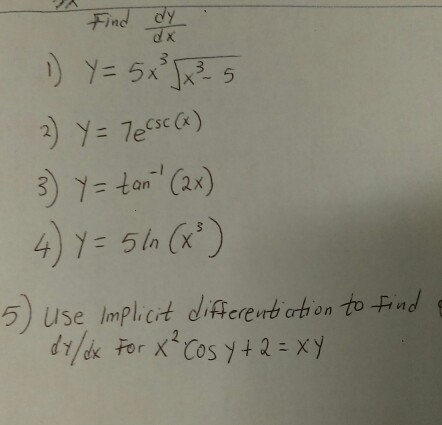 Find dy/dx
1) y = 5x³√(x³ - 5)
2) y = 7e^(csc(x))
3) y = tan⁻¹(2x)
4) y = 5 ln (x³)
5) Use Implicit differentiation to find
dy/dx For x² cos y + 2 = xy